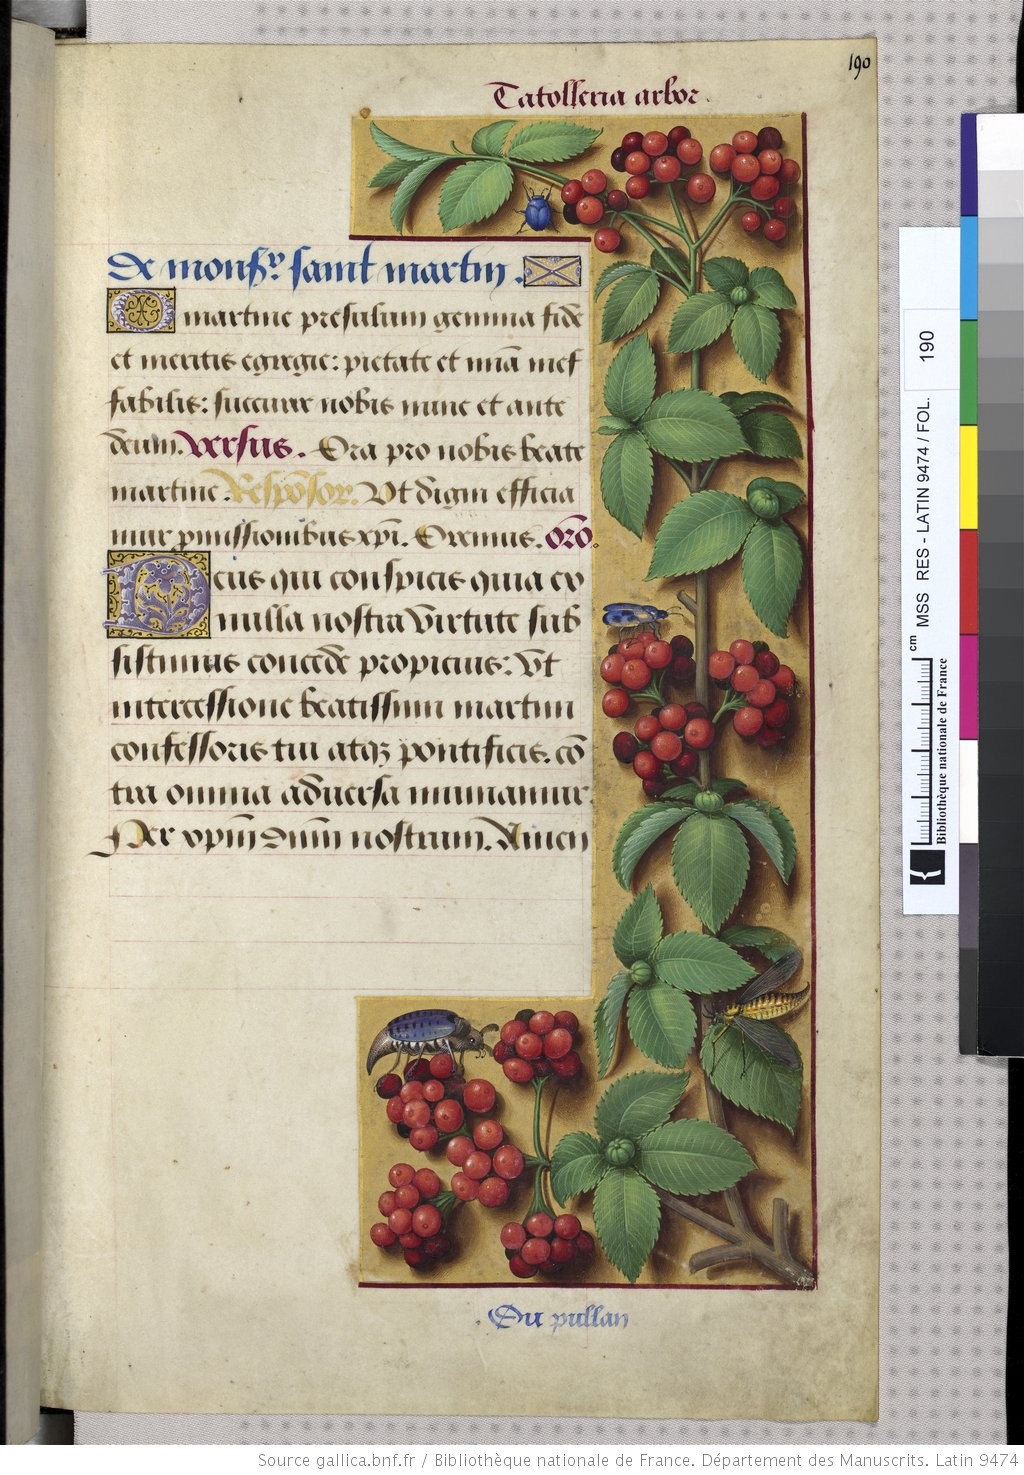 190
Tatolseria arbor.
De monsr. saint martin.
O martine presulum gemma fide
et meritis egregie: pietate et mīa inef
fabilis: succurre nobis nunc et ante
deum. Versus. Ora pro nobis beate
martine. Responsor. Vt digni efficia
mur pmissionibus xpi. Oremus. orō.
Deus qui conspicis quia ex
nulla nostra virtute sub
sistimus concede propicius: Vt
intercessione beatissimi martini
confessoris tui atqz pontificis. cō
tra omnia aduersa muniamur.
Per xpm dnm nostrum. Amen
. Du pullan
190
MSS RES - LATIN 9474 / FOL.
cm
Bibliothèque nationale de France
Source gallica.bnf.fr / Bibliothèque nationale de France. Département des Manuscrits. Latin 9474